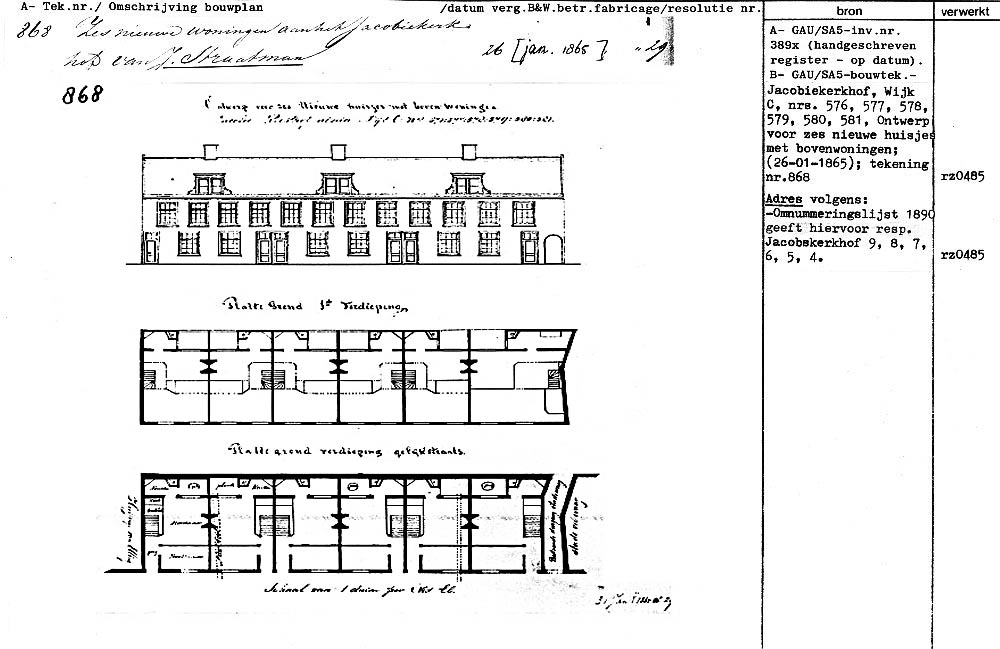 A- Tek.nr./ Omschrijving bouwplan /datum verg.B&W.betr.fabricage/resolutie nr.
bron
verwerkt
868 Zes nieuwe woningen aan het Jacobiekerk
hof van J. Straatman
26 [jan. 1865] " 29
868
Platte Grond 1ste Verdieping
Platte grond verdieping gelijkstraats.
Schaal van 1 duim
A- GAU/SA5-inv.nr.
389x (handgeschreven
register - op datum).
B- GAU/SA5-bouwtek.-
Jacobiekerkhof, Wijk
C, nrs. 576, 577, 578,
579, 580, 581, Ontwerp
voor zes nieuwe huisjes
met bovenwoningen;
(26-01-1865); tekening
nr.868
rz0485
Adres volgens:
-Omnummeringslijst 1890
geeft hiervoor resp.
Jacobskerkhof 9, 8, 7,
6, 5, 4.
rz0485